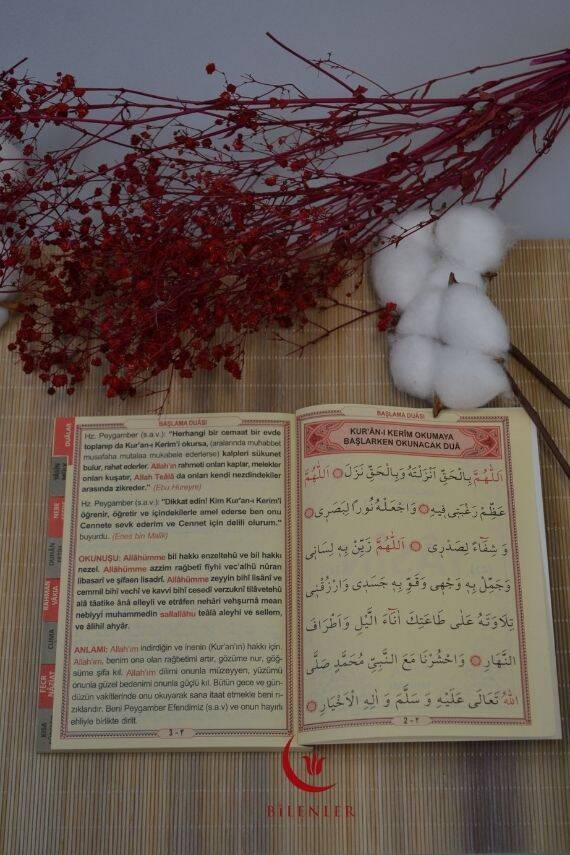 BAŞLAMA DUÂSI
Hz. Peygamber (s.a.v.): "Herhangi bir cemaat bir evde
toplanıp da Kur'an-ı Kerim'i okursa, (aralarında muhabbet
musafaha mutalaa mukabele ederlerse) kalpleri sükunet
bulur, rahat ederler. Allah'ın rahmeti onları kaplar, melekler
onları kuşatır, Allah Teâlâ da onları kendi nezdindekiler
arasında zikreder." (Ebu Hüreyre)
Hz. Peygamber (s.a.v.): "Dikkat edin! Kim Kur'an-ı Kerim'i
öğrenir, öğretir ve içindekilerle amel ederse ben onu
Cennete sevk ederim ve Cennet için delili olurum."
buyurdu. (Enes bin Malik)
OKUNUŞU: Allahümme bil hakkı enzeltehü ve bil hakkı
nezel. Allahümme azzim rağbetî fîyhi vec'alhü nûran
libasarî ve şifaen lisadrî. Allahümme zeyyin bihî lisânî ve
cemmil bihî vechî ve kavvi bihî cesedî verzuknî tilâvetehû
alâ tâatike ânâ elleyli ve etrâfen nehâri vehşurnâ mean
nebiyyi muhammedin sallallâhu teâlâ aleyhi ve sellem,
ve âlihil ahyâr.
ANLAMI: Allah'ım indirdiğin ve inenin (Kur'an'ın) hakkı için.
Allah'ım, benim ona olan rağbetimi artır, gözüme nur, göğ-
süme şifa kıl. Allah'ım dilimi onunla müzeyyen, yüzümü
onunla güzel bedenimi onunla güçlü kıl. Bütün gece ve gün-
düzün vakitlerinde onu okuyarak sana itaat etmekle beni rı-
zıklandır. Beni Peygamber Efendimiz (s.a.v) ve onun hayırlı
ehliyle birlikte dirilt.
3 - ٣
BAŞLAMA DUÂSI
KUR'ÂN-I KERÎM OKUMAYA
BAŞLARKEN OKUNACAK DUÂ
اَللّٰهُمَّ بِالْحَقِّ اَنْزَلْتَهُ وَبِالْحَقِّ نَزَلَ ۞ اَللّٰهُمَّ
عَظِّمْ رَغْبَتِى فِيهِ ۞ وَاجْعَلْهُ نُورًا لِبَصَرِى ۞
وَ شِفَٓاءً لِصَدْرِى ۞ اَللّٰهُمَّ زَيِّنْ بِهِ لِسَانِى
وَجَمِّلْ بِهِ وَجْهِى وَقَوِّ بِهِ جَسَدِى وَارْزُقْنِى
تِلَاوَتَهُ عَلَى طَاعَتِكَ اٰنَٓاءَ الَّيْلِ وَاَطْرَافَ
النَّهَارِ ۞ وَاحْشُرْنَا مَعَ النَّبِيِّ مُحَمَّدٍ صَلَّى
اللّٰهُ تَعَالَى عَلَيْهِ وَ سَلَّمَ وَ اٰلِهِ الْاَخْيَارِ ۞
2 - ٢
BİLENLER